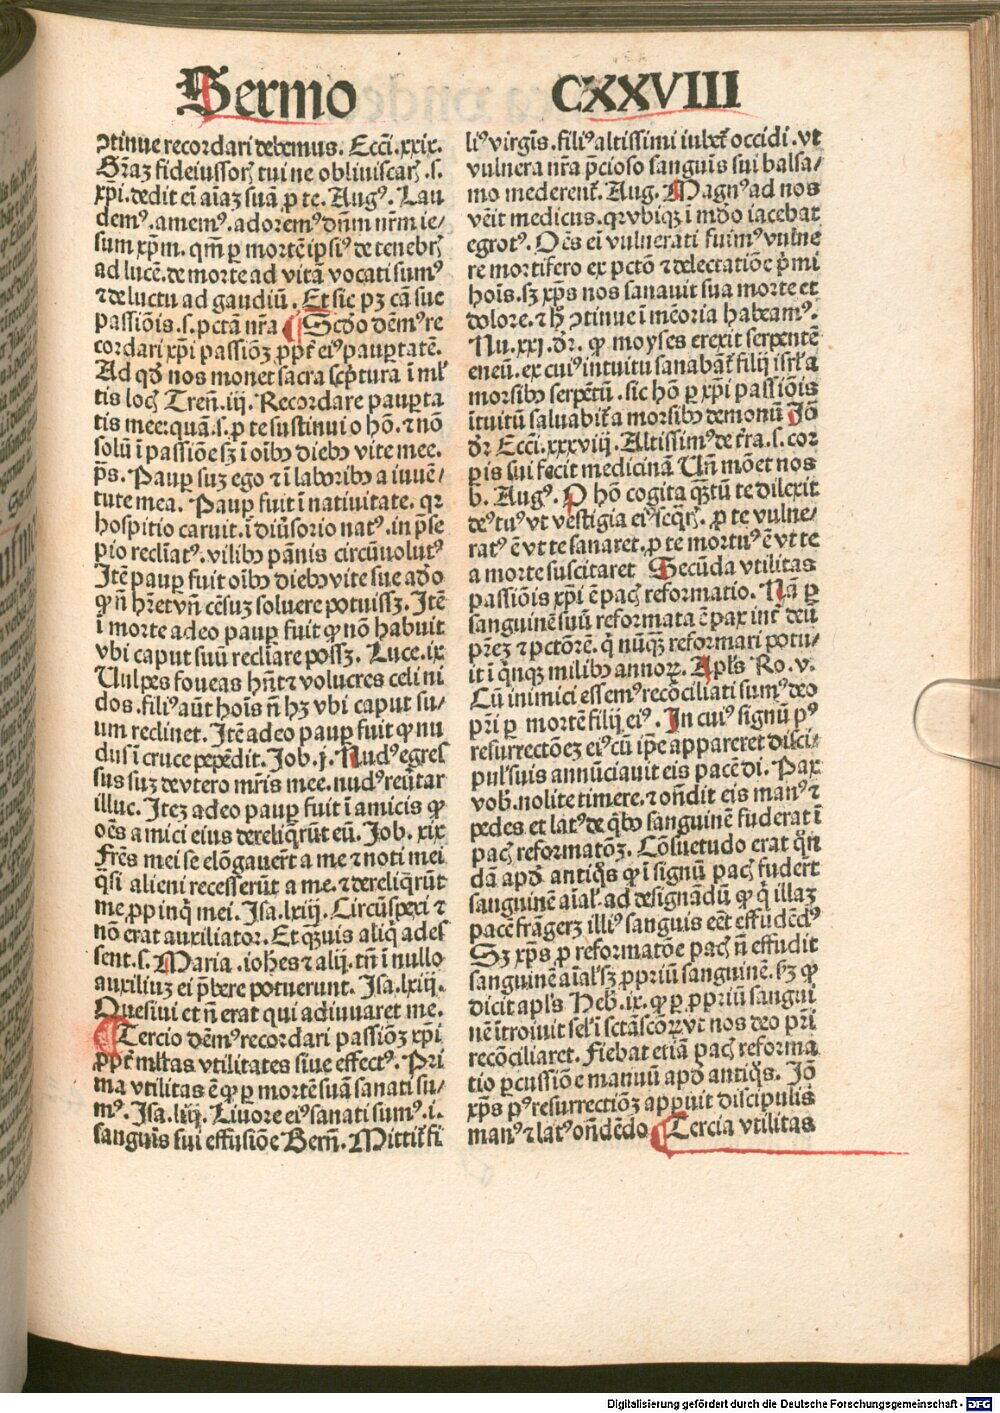 Sermo CXXVIII
ꝯtinue recordari debemus. Ecci. xxix.
Gr̄az fideiussorꝭ tui ne obliuiscarꝭ .s.
xp̄i. dedit ei aīaz suā ꝓ te. Augꝰ. Lau
demꝰ. amemꝰ. adoremꝰ dn̄m nr̄m ie⸗
sum xp̄m. qm̄ ꝑ mortē ipsiꝰ de tenebrꝭ
ad lucē. de morte ad vitā vocati sumꝰ
⁊ de luctu ad gaudiū. Et sic pꝫ cā sue
passiōis .s. pctā nr̄a ¶ Scd̄o dēmꝰ re
cordari xp̄i passiōꝫ ꝓpt̄ eiꝰ pauꝑtatē.
Ad qd̄ nos monet sacra scp̄tura ī ml̄
tis locꝭ Tren̄. iij. Recordare pauꝑta
tis mee: quā .s. ꝓ te sustinui o hō. ⁊ nō
solū ī passiōe sꝫ ī oībꝰ diebꝰ vite mee.
p̄s. Pauꝑ suꝫ ego ⁊ ī laboribꝰ a iuuē⸗
tute mea. Pauꝑ fuit ī natiuitate. qr
hospitio caruit. ī diūsorio natꝰ. in p̄se
pio recliatꝰ. vilibꝰ pānis circūuolutꝰ
Itē pauꝑ fuit oībꝰ diebꝰ vite sue adeo
ꝙ n̄ hr̄et vn̄ cēsuꝫ soluere potuissꝫ. Itē
ī morte adeo pauꝑ fuit ꝙ nō habuit
vbi caput suū recliare possꝫ. Luce. ix
Uulpes foueas hn̄t ⁊ volucres celi ni
dos. filiꝰ aūt hoīs n̄ hꝫ vbi caput su⸗
um reclinet. Itē adeo pauꝑ fuit ꝙ nu
dus ī cruce pepēdit. Job. j. Nudꝰ egres
sus suꝫ de vtero mr̄is mee. nudꝰ reūtar
illuc. Iteꝫ adeo pauꝑ fuit ī amicis ꝙ
oēs amici eius dereliq̄rūt eū. Job. xix
Fr̄es mei se elōgauert̄ a me ⁊ noti mei
q̄si alieni recesserūt a me. ⁊ dereliq̄rūt
me ꝓpinq̄ mei. Isa. lxiij. Circūspexi ⁊
nō erat auxiliator. Et qꝫuis aliq̄ ades
sent .s. Maria. iohēs ⁊ alij. tn̄ ī nullo
auxiliuꝫ ei p̄bere potuerunt. Isa. lxiij.
Quesiui et n̄ erat qui adiuuaret me.
¶ Tercio dēmꝰ recordari passiōꝫ xp̄i
ꝓpt̄ ml̄tas vtilitates siue effectꝰ. Pri
ma vtilitas ē ꝙ ꝑ mortē suā sanati su⸗
mꝰ. Isa. liij. Liuore eiꝰ sanati sumꝰ .i.
sanguīs sui effusiōe Bern̄. Mittit̄ fi
liꝰ virgīs. filiꝰ altissimi iubet̄ occidi. vt
vulnera nr̄a p̄cioso sanguīs sui balsa⸗
mo mederent̄. Aug. Magnꝰ ad nos
venit medicus. qr vbiqꝫ ī mūdo iacebat
egrotꝰ. Oēs ei vulnerati fuimꝰ vulne
re mortifero ex pctō ⁊ delectatiōe p̄mi
hoīs. sꝫ xp̄s nos sanauit sua morte et
dolore. ⁊ hꝫ ꝯtinue ī mēoria habeamꝰ.
Nu. xxj. dr̄. ꝙ moyses erexit serpentē
eneū. ex cuiꝰ intuitu sanabāt̄ filij isrl̄ a
morsibꝰ serpētū. sic hō ꝑ xp̄i passiōis
ītuitū saluabit̄ a morsibꝰ demonū Iō
dr̄ Ecci. xxxviij. Altissimꝰ de t̄ra .s. cor
ꝑis sui fecit medicinā Un̄ mōet nos
b. Augꝰ. O hō cogita qꝫtū te dilexit
deꝰ tuꝰ vt vestigia eiꝰ seq̄rꝭ. ꝓ te vulne⸗
ratꝰ ē vt te sanaret. ꝓ te mortuꝰ ē vt te
a morte suscitaret Secūda vtilitas
passiōis xp̄i ē pacꝭ reformatio. Nā ꝑ
sanguinē suū reformata ē pax int̄ deū
pr̄eꝫ ⁊ pctōrē. q̄ nūqꝫ reformari potu⸗
it ī q̄nqꝫ milibꝰ annoꝝ. Apl̄s Ro. v.
Cū inimici essemꝰ recōciliati sumꝰ deo
pr̄i ꝑ mortē filij eiꝰ. In cuiꝰ signū pꝰ
resurrectōeꝫ eiꝰ cū ip̄e appareret disci⸗
pulꝭ suis annūciauit eis pacē dī. Pax
vob̄. nolite timere. ⁊ on̄dit eis manꝰ ⁊
pedes et latꝰ de q̄bꝰ sanguinē fuderat ī
pacꝭ reformatōꝫ. Cōsuetudo erat q̄n
dā apd̄ antiq̄s ꝙ ī signū pacꝭ fudert̄
sanguinē aīal̄. ad designādū ꝙ q̄ illaꝫ
pacē frāgerꝫ illiꝰ sanguis eēt effudēdꝰ
Sꝫ xp̄s ꝓ reformatōe pacꝭ n̄ effudit
sanguinē aīal̄ sꝫ ꝓpriū sanguinē. sꝫ ꝙ
dicit apl̄s Heb̄. ix. ꝙ ꝑ ꝓpriū sangui
nē ītroiuit sel̄ ī sctā scōꝝ vt nos deo pr̄i
recōciliaret. Fiebat etiā pacꝭ reforma
tio ꝑcussiōe manuū apd̄ antiq̄s. Iō
xp̄s pꝰ resurrectiōꝫ apꝑuit discipulis
manꝰ ⁊ latꝰ on̄dēdo ¶ Tercia vtilitas
Digitalisierung gefördert durch die Deutsche Forschungsgemeinschaft - DFG